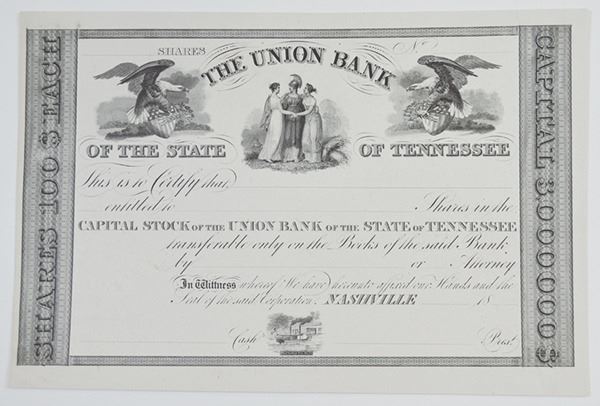 SHARES No
THE UNION BANK
OF THE STATE OF TENNESSEE
This is to Certify that
entitled to Shares in the
CAPITAL STOCK OF THE UNION BANK OF THE STATE OF TENNESSEE
transferable only on the Books of the said Bank
by or Attorney
In Witness whereof We have hereunto affixed our Hands and the
Seal of the said Corporation. NASHVILLE 18
Cash Prest.
SHARES 100 $ EACH
CAPITAL 3.000000$